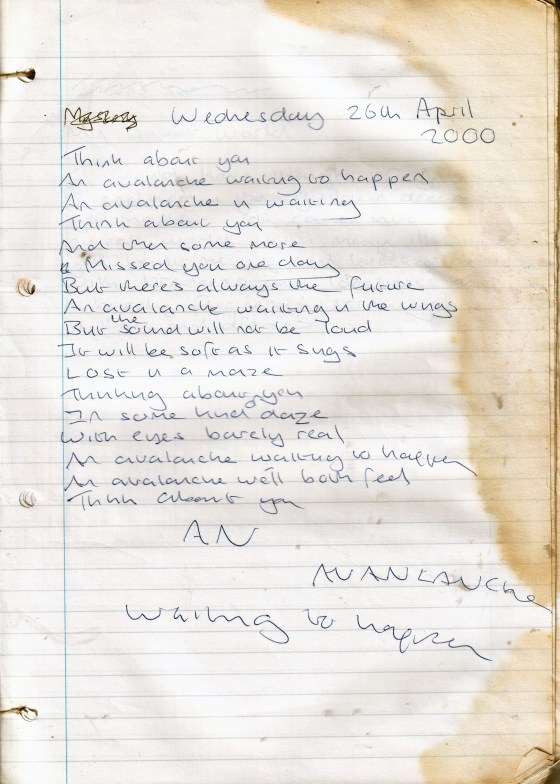 Wednesday 26th April
2000
Think about you
An avalanche waiting to happen
An avalanche in waiting
Think about you
And then some more
Missed you one day
But theres always the future
An avalanche waiting in the wings
But the sound will not be loud
It will be soft as it sings
Lost in a maze
Thinking about you
In some kind o daze
With eyes barely real
An avalanche waiting to happen
An avalanche we'll both feel
Think about you
AN
AVANLANCHe
waiting to happen